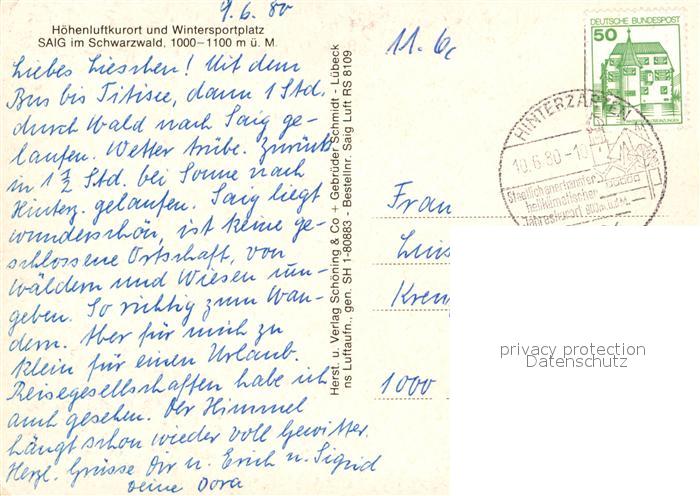 9.6.80
Höhenluftkurort und Wintersportplatz
SAIG im Schwarzwald, 1000–1100 m ü. M.
Liebes Lieschen! Mit dem
Bus bis Titisee, dann 1 Std.
durch Wald nach Saig ge-
laufen. Wetter trübe. Zurück
in 1 ½ Std. bei Sonne nach
Hinterz. gelaufen. Saig liegt
wunderschön, ist keine ge-
schlossene Ortschaft, von
Wäldern und Wiesen um-
geben. So richtig zum Wan-
dern. Aber für mich zu
klein für einen Urlaub.
Reisegesellschaften habe ich
auch gesehen. Der Himmel
hängt schon wieder voll Gewitter.
Herzl. Grüsse Dir u. Erich u. Sigrid
Deine Dora
Herst. u. Verlag Schöning & Co + Gebrüder Schmidt - Lübeck
ns Luftaufn., gen. SH 1-80883 - Bestellnr. Saig Luft RS 8109
11.6
DEUTSCHE BUNDESPOST
50
HINTERZARTEN
10.6.80-10
Staatlich anerkannter
heilklimatischer
Jahreskurort
Frau
Luis
Kreu
1000
privacy protection
Datenschutz